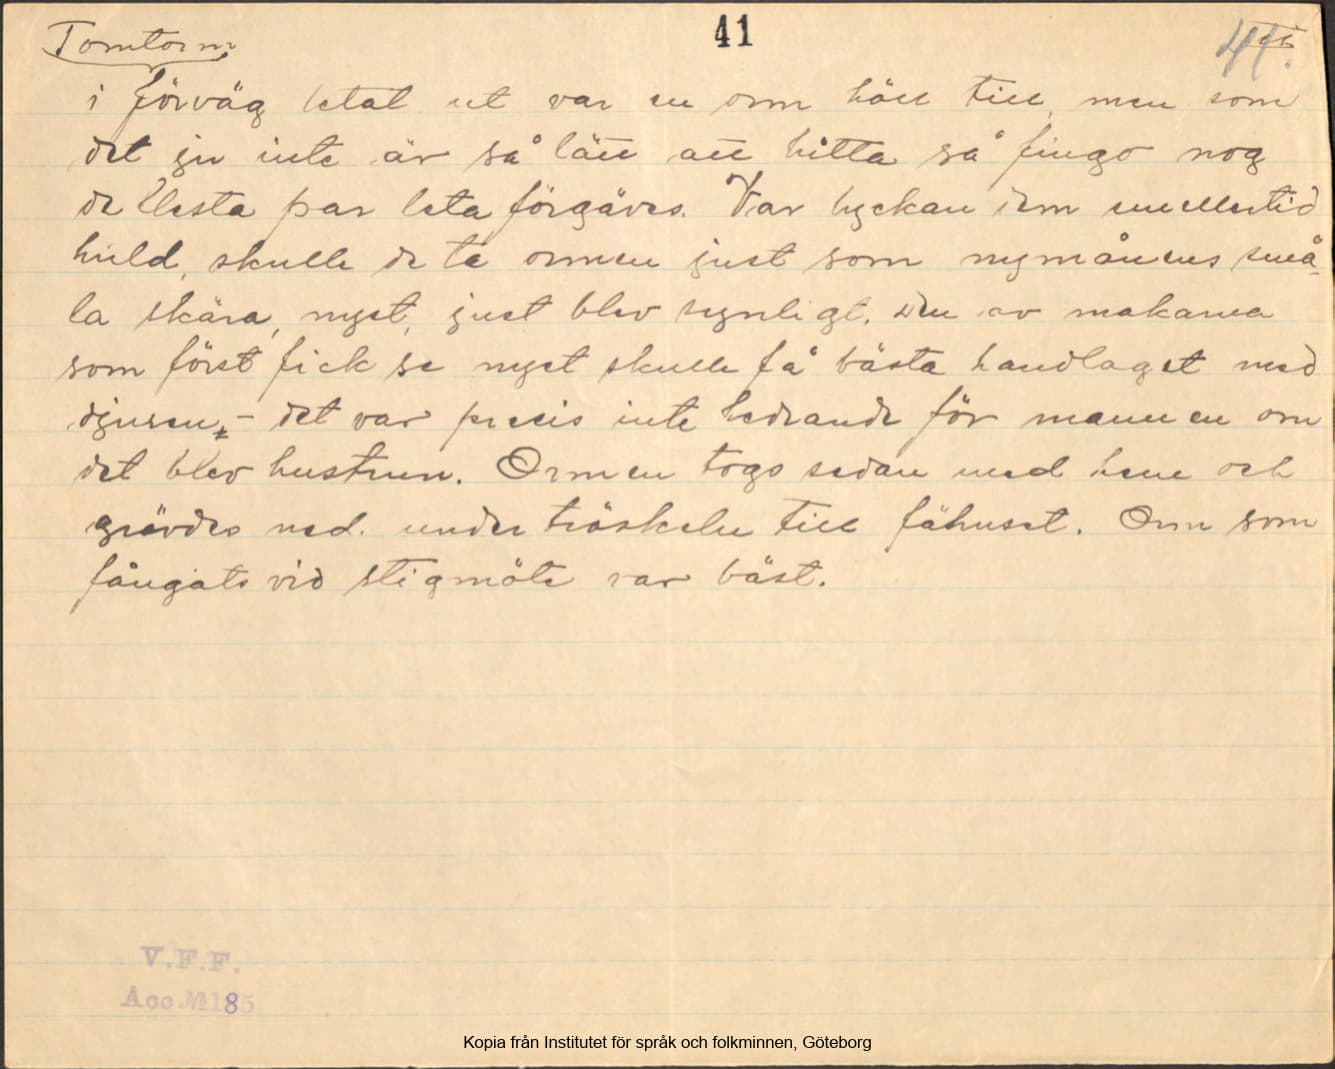 Tomtorm
41
i förväg letat ut var en orm höll till, men som
det ju inte är så lätt att hitta så fingo nog
de flesta par leta förgäves. Var lyckan dem emellertid
huld, skulle de ta ormen just som nymånens sma-
la skära, nyet, just blev synligt. Den av makarna
som först fick se nyet skulle få bästa handlaget med
djuren, - det var precis inte hedrande för mannen om
det blev hustrun. Ormen togs sedan med hem och
grävdes ned under tröskeln till fähuset. Orm som
fångats vid stigmöte var bäst.
V.F.F.
Acc № 185
Kopia från Institutet för språk och folkminnen, Göteborg